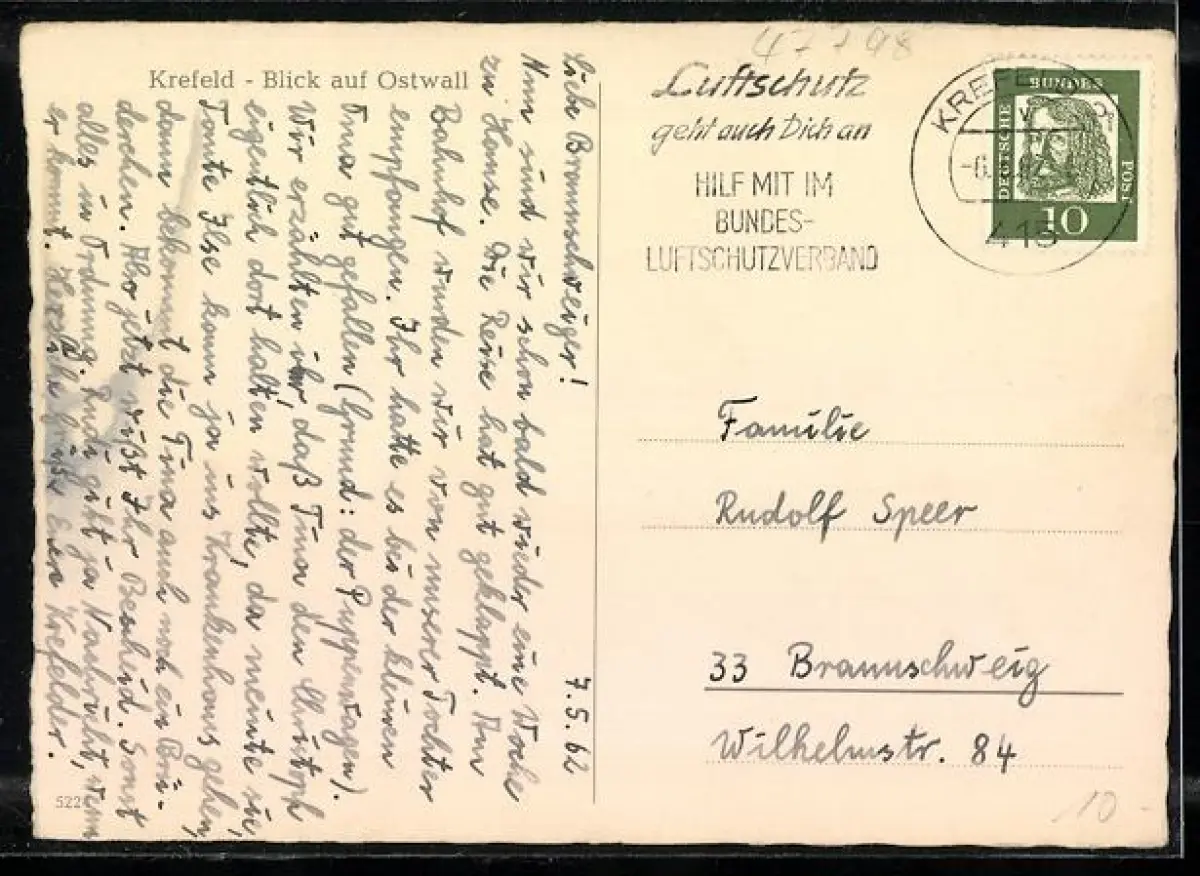 Krefeld - Blick auf Ostwall
7.5.62
Liebe Braunschweiger!
Nun sind wir schon bald wieder eine Woche
zu Hause. Die Reise hat gut geklappt. Am
Bahnhof wurden wir von unserer Tochter
empfangen. Ihr hatte es bei der kleinen
Oma gut gefallen (Grund: der Puppenwagen).
Wir erzählten ihr, daß Tina den Christoph
eigentlich dort halten wollte, da meinte sie,
Tante Ilse kann ja ins Krankenhaus gehen,
dann bekommt die Tina auch noch ein Brü-
derchen. Also jetzt wißt Ihr Bescheid. Sonst
alles in Ordnung. Rudi gibt ja Nachricht, wenn
er kommt. Herzliche Grüße Eure Krefelder.
522
47798
Luftschutz
geht auch Dich an
HILF MIT IM
BUNDES-
LUFTSCHUTZVERBAND
KREFELD
415
DEUTSCHE
BUNDES
POST
10
Familie
Rudolf Speer
33 Braunschweig
Wilhelmstr. 84
10 -